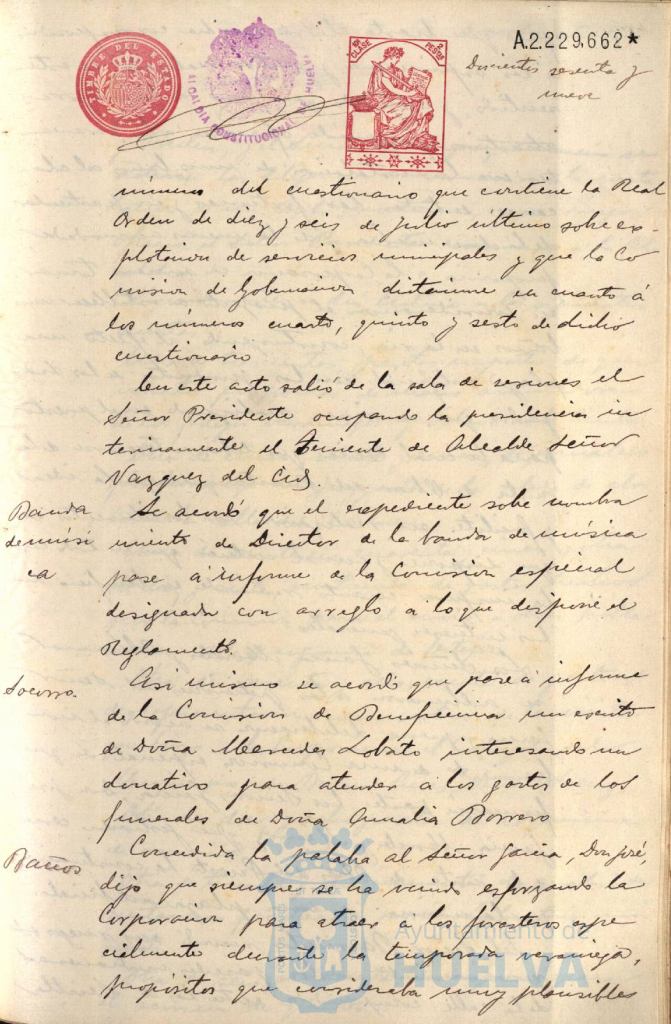 TIMBRE DEL ESTADO
ALCALDIA CONSTITUCIONAL DE HUELVA
1ª CLASE 2 PESTAS
A.2.229,662*
Doscientos sesenta y
nueve
número del cuestionario que contiene la Real
Orden de diez y seis de Julio último sobre ex-
plotacion de servicios municipales y que la Co
mision de Gobernacion dictamine en cuanto á
los números cuarto, quinto y sesto de dicho
cuestionario
En este acto salió de la sala de sesiones el
Señor Presidente ocupando la presidencia in
terinamente el Teniente de Alcalde Señor
Vazquez del Cid.
Banda
de músi
ca
Se acordó que el expediente sobre nombra
miento de Director de la banda de música
pase á informe de la Comision especial
designada con arreglo a lo que dispone el
Reglamento.
Socorro.
Asi mismo se acordó que pase á informe
de la Comision de Beneficencia un escrito
de Doña Mercedes Lobato interesando un
donativo para atender á los gastos de los
funerales de Doña Amalia Borrero
Baños
Concedida la palabra al Señor Garcia, Don José,
dijo que siempre se ha venido esforzando la
Corporacion para atraer á los forasteros espe
cialmente durante la temporada veraniega,
propósitos que consideraba muy plausibles
Ayuntamiento de
HUELVA